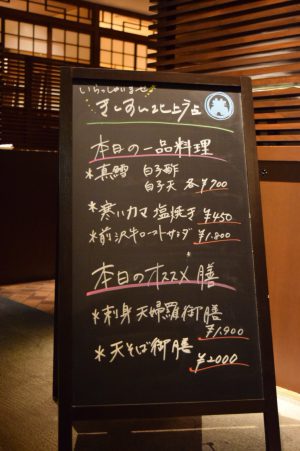 いらっしゃいませ
きしすい北上うぇ
本日の一品料理
*真鱈 白子酢
白子天 各¥700
*寒ハカマ 塩焼き ¥450
*前沢牛ローストサラダ ¥1,200
本日のオススメ膳
*刺身天婦羅御膳
¥1,900
*天そば御膳
¥2000